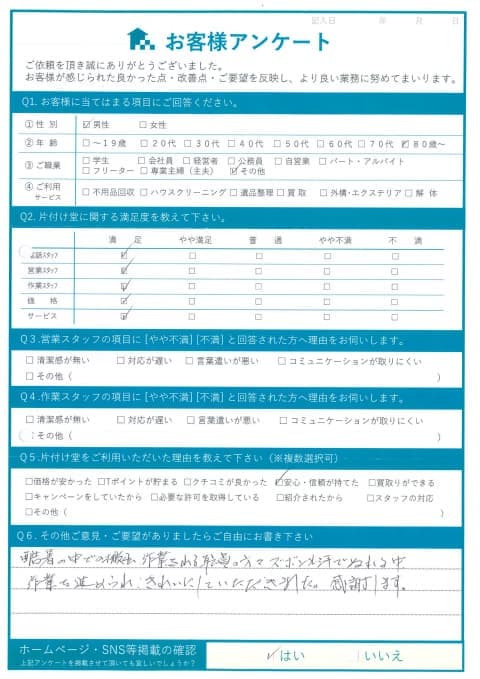 記入日 年 月 日
お客様アンケート
ご依頼を頂き誠にありがとうございました。
お客様が感じられた良かった点・改善点・ご要望を反映し、より良い業務に努めてまいります。
Q1. お客様に当てはまる項目にご回答ください。
①性 別 ☑男性 □女性
②年 齢 □～19歳 □20代 □30代 □40代 □50代 □60代 □70代 ☑80歳～
③ご職業 □学生 □会社員 □経営者 □公務員 □自営業 □パート・アルバイト
□フリーター □専業主婦（主夫） ☑その他
④ご利用サービス □不用品回収 □ハウスクリーニング □遺品整理 □買取 □外構・エクステリア □解 体
Q2. 片付け堂に関する満足度を教えて下さい。
満 足 やや満足 普 通 やや不満 不 満
電話スタッフ ☑ □ □ □ □
営業スタッフ ☑ □ □ □ □
作業スタッフ ☑ □ □ □ □
価 格 ☑ □ □ □ □
サービス ☑ □ □ □ □
Q3. 営業スタッフの項目に[やや不満][不満]と回答された方へ理由をお伺いします。
□清潔感が無い □対応が遅い □言葉遣いが悪い □コミュニケーションが取りにくい
□その他（ ）
Q4. 作業スタッフの項目に[やや不満][不満]と回答された方へ理由をお伺いします。
□清潔感が無い □対応が遅い □言葉遣いが悪い □コミュニケーションが取りにくい
□その他（ ）
Q5. 片付け堂をご利用いただいた理由を教えて下さい（※複数選択可）
□価格が安かった □Tポイントが貯まる □クチコミが良かった ☑安心・信頼が持てた □買取りができる
□キャンペーンをしていたから □必要な許可を取得している □紹介されたから □スタッフの対応
□その他（ ）
Q6. その他ご意見・ご要望がありましたらご自由にお書き下さい
酷暑の中での搬出 作業される 方々 ズボンも汗でぬれる中
作業を進められ、きれいにしていただきました。感謝します。
ホームページ・SNS等掲載の確認 ☑はい □いいえ
上記アンケートを掲載させて頂いても宜しいでしょうか？